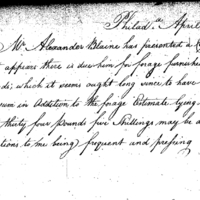 Philad.a April
Mr. Alexander Blaine has presented a
appears there is due him for forage furnished
de; which it seems ought long since to have
own in Addition to the forage Estimate lying
thirty four pounds five Shillings may be a
tions to me being) frequent and pressing